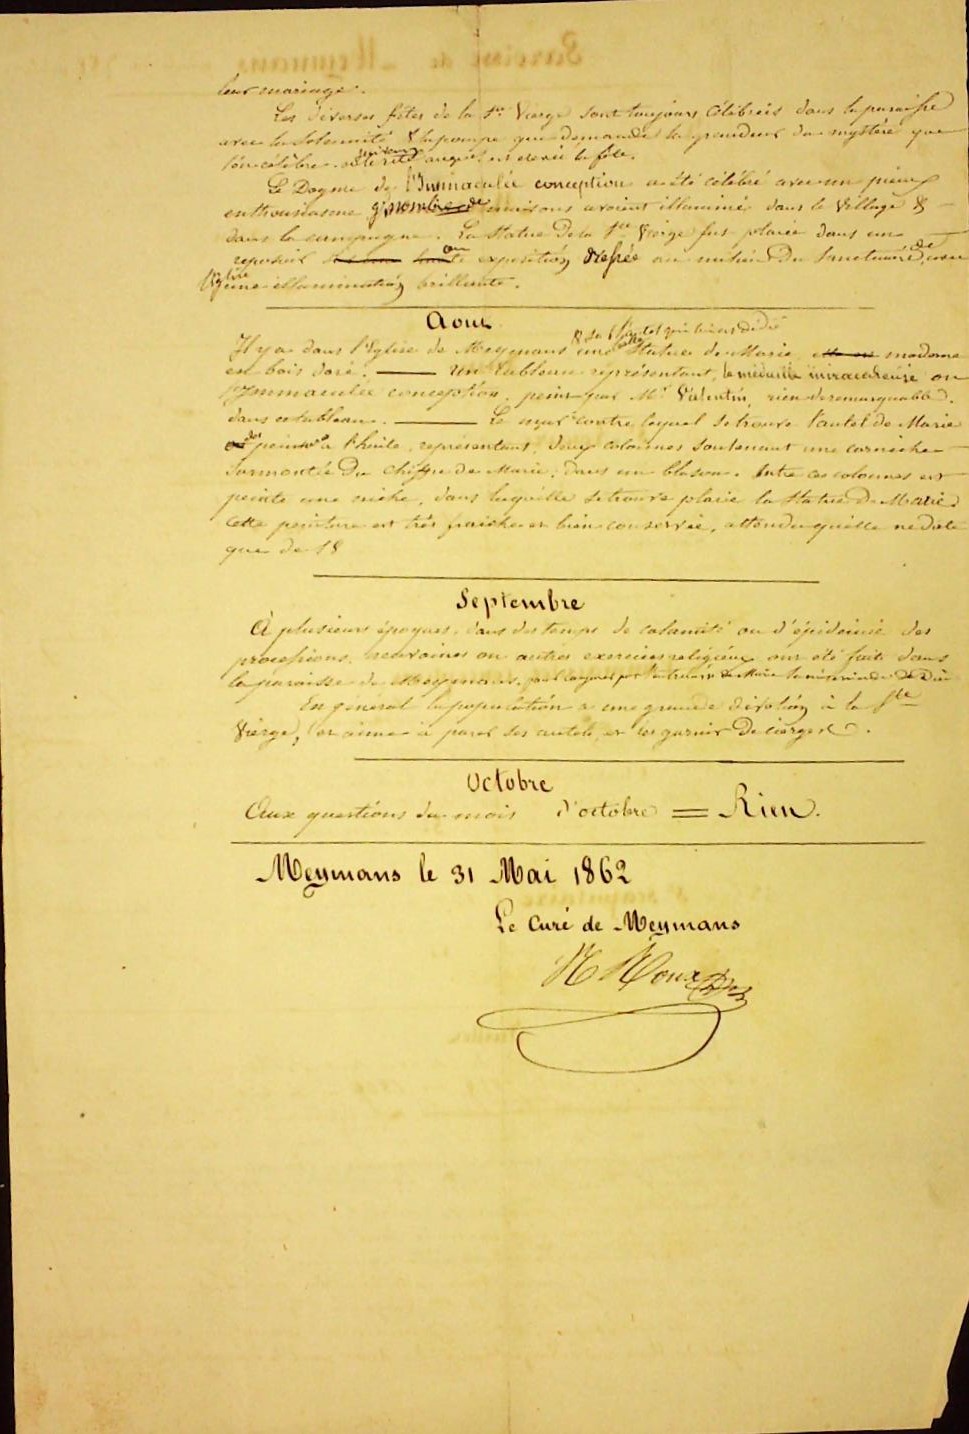 leur mariage.
Les diverses fêtes de la Ste Vierge sont toujours célébrées dans la paroisse
avec la solemnité & la pompe que demande la grandeur du mystère que
l'on célèbre auquel est élevée la fête.
Le Dogme de l'Immaculée conception a été célébré avec un pieux
enthousiasme maisons avaient illuminé dans le village &
dans la campagne. La statue de la Ste Vierge fut placée dans un
reposoir ou exposition dressée au milieu du sanctuaire de
l'église une illumination brillante.
Aout
Il y a dans l'Eglise de Meymans une statue de Marie madone
en bois doré. — Un tableau représentant, la médaille miraculeuse ou
l'Immaculée conception, peint par Mr Valentin, rien de remarquable
dans ce tableau. — Le mur contre lequel se trouve l'autel de Marie
est peint à l'huile, représentant deux colonnes soutenant une corniche
surmontée du chiffre de Marie, dans un blason. Entre ces colonnes est
peinte une niche, dans laquelle se trouve placée la statue de Marie.
Cette peinture est très fraiche et bien conservée, attendu qu'elle ne date
que de 18
Septembre
A plusieurs époques, dans des temps de calamité ou d'épidémie des
processions, neuvaines ou autres exercices religieux ont été faits dans
la paroisse de Meymans, par de Marie la miséricorde de Dieu
En général la population a une grande dévotion à la Ste
Vierge, et aime à parer ses autels et les garnir de cierges.
Octobre
Aux questions du mois d'octobre = Rien.
Meymans le 31 Mai 1862
Le Curé de Meymans
Roux